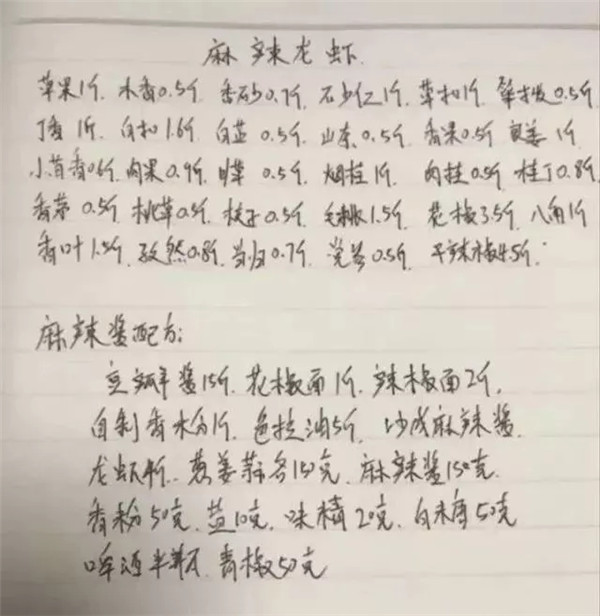 麻辣龙虾
草果1斤 木香0.5斤 香砂0.7斤 石少仁1斤 草扣1斤 荜拨0.5斤
丁香1斤 白扣1.6斤 白芷0.5斤 山柰0.5斤 香果0.5斤 良姜1斤
小茴香0.6斤 肉果0.9斤 甘草0.5斤 烟桂1斤 肉桂0.5斤 桂丁0.8斤
香茅0.5斤 枝子0.5斤 毛桃1.5斤 花椒3.5斤 八角1斤
香叶1.5斤 孜然0.8斤 当归0.7斤 0.5斤 干辣椒4.5斤
麻辣酱配方:
豆瓣酱15斤 花椒面1斤 辣椒面2斤
自制香料粉1斤 色拉油5斤 炒成麻辣酱
龙虾4斤 葱姜蒜各150克 麻辣酱150克
香粉50克 盐10克 味精20克 白糖50克
啤酒半瓶 青椒50克